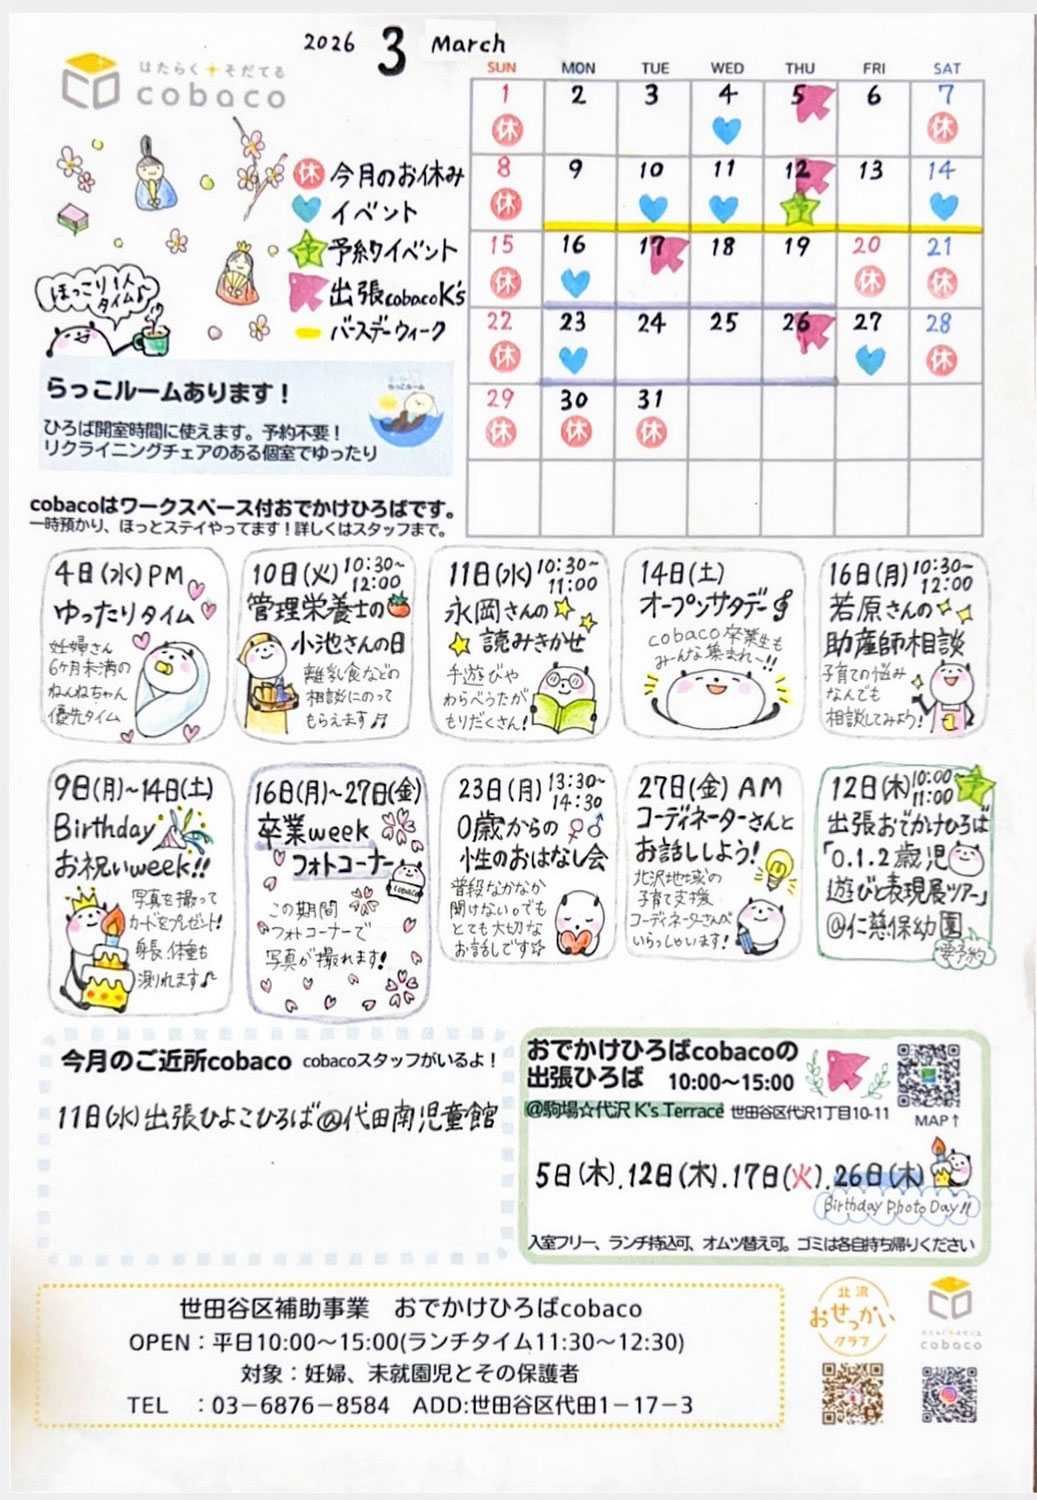 2026 3 March
はたらく+そだてる
cobaco
休 今月のお休み
イベント
予 予約イベント
出張cobacoK's
バースデーウィーク
ほっこり1人
タイム♪
SUN MON TUE WED THU FRI SAT
1 2 3 4 5 6 7
休 休
8 9 10 11 12 13 14
休 予
15 16 17 18 19 20 21
休 休 休
22 23 24 25 26 27 28
休 休
29 30 31
休 休 休
らっこルームあります！
らっこルーム
ひろば開室時間に使えます。予約不要！
リクライニングチェアのある個室でゆったり
cobacoはワークスペース付おでかけひろばです。
一時預かり、ほっとステイやってます！詳しくはスタッフまで。
4日(水)PM
ゆったりタイム
妊婦さん
6ヶ月未満の
ねんねちゃん
優先タイム
10日(火) 10:30~
12:00
管理栄養士の
小池さんの日
離乳食などの
相談にのって
もらえます♫
11日(水) 10:30~
11:00
永岡さんの
読みきかせ
手遊びや
わらべうたが
もりだくさん!
14日(土)
オープンサタデー
cobaco卒業生も
みーんな集まれ~!!
16日(月) 10:30~
12:00
若原さんの
助産師相談
子育ての悩み
なんでも
相談してみよう!
9日(月)~14日(土)
Birthday
お祝いweek!!
写真を撮って
カードをプレゼント!
身長・体重も
測れます♪
16日(月)~27日(金)
卒業week
フォトコーナー
cobaco
この期間
フォトコーナーで
写真が撮れます!
23日(月) 13:30~
14:30
0歳からの♀♂
性のおはなし会
普段なかなか
聞けない。でも
とても大切な
お話しです☆
27日(金) AM
コーディネーターさんと
お話ししよう!
北沢地域の
子育て支援
コーディネーターさんが
いらっしゃいます!
12日(木) 10:00~
11:00 予
出張おでかけひろば
「0.1.2歳児
遊びと表現展ツアー」
@仁慈保幼園
要予約
今月のご近所cobaco cobacoスタッフがいるよ！
11日(水)出張ひよこひろば@代田南児童館
おでかけひろばcobacoの
出張ひろば 10:00～15:00
@駒場☆代沢 K's Terrace 世田谷区代沢1丁目10-11
MAP↑
5日(木).12日(木).17日(火).26日(木)
Birthday Photo Day!!
入室フリー、ランチ持込可、オムツ替え可。ゴミは各自持ち帰りください
世田谷区補助事業 おでかけひろばcobaco
OPEN：平日10:00～15:00(ランチタイム11:30～12:30)
対象：妊婦、未就園児とその保護者
TEL ：03－6876－8584 ADD:世田谷区代田1－17－3
北沢
おせっかい
クラブ
はたらく+そだてる
cobaco